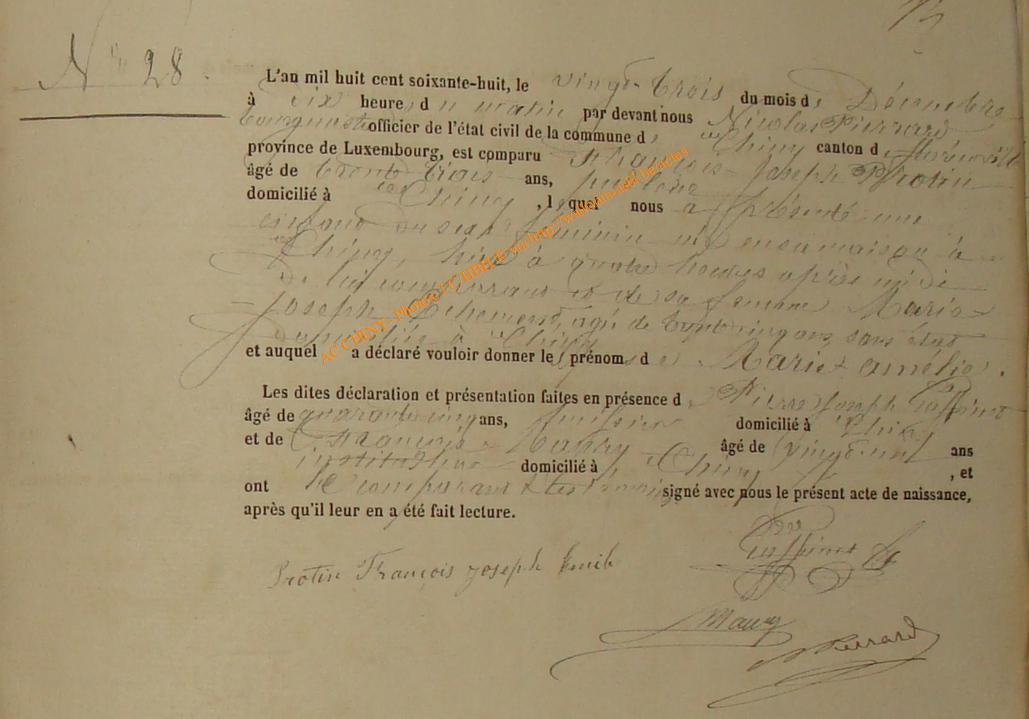 N° 28.
L'an mil huit cent soixante-huit, le vingt-trois du mois de Décembre
à dix heure, du matin par devant nous Nicolas Pierrard
Bourgmestre officier de l'état civil de la commune de Chiny canton de Florenville
province de Luxembourg, est comparu François-Joseph Protin
âgé de trente trois ans,
domicilié à Chiny, lequel nous a présenté une
enfant du sexe féminin née en sa maison à
Chiny, hier à quatre heures après midi
de lui comparant et de sa femme Marie-
Joseph âgée de trente cinq ans sans état
domiciliée à Chiny
et auquel a déclaré vouloir donner les prénoms de Marie Amélie.
Les dites déclaration et présentation faites en présence de Pierre Joseph
âgé de quarante cinq ans, domicilié à Chiny
et de François Maury âgé de vingt un ans
instituteur domicilié à Chiny, et
ont comparant & témoins signé avec nous le présent acte de naissance,
après qu'il leur en a été fait lecture.
Protin François joseph
Maury
Pierrard